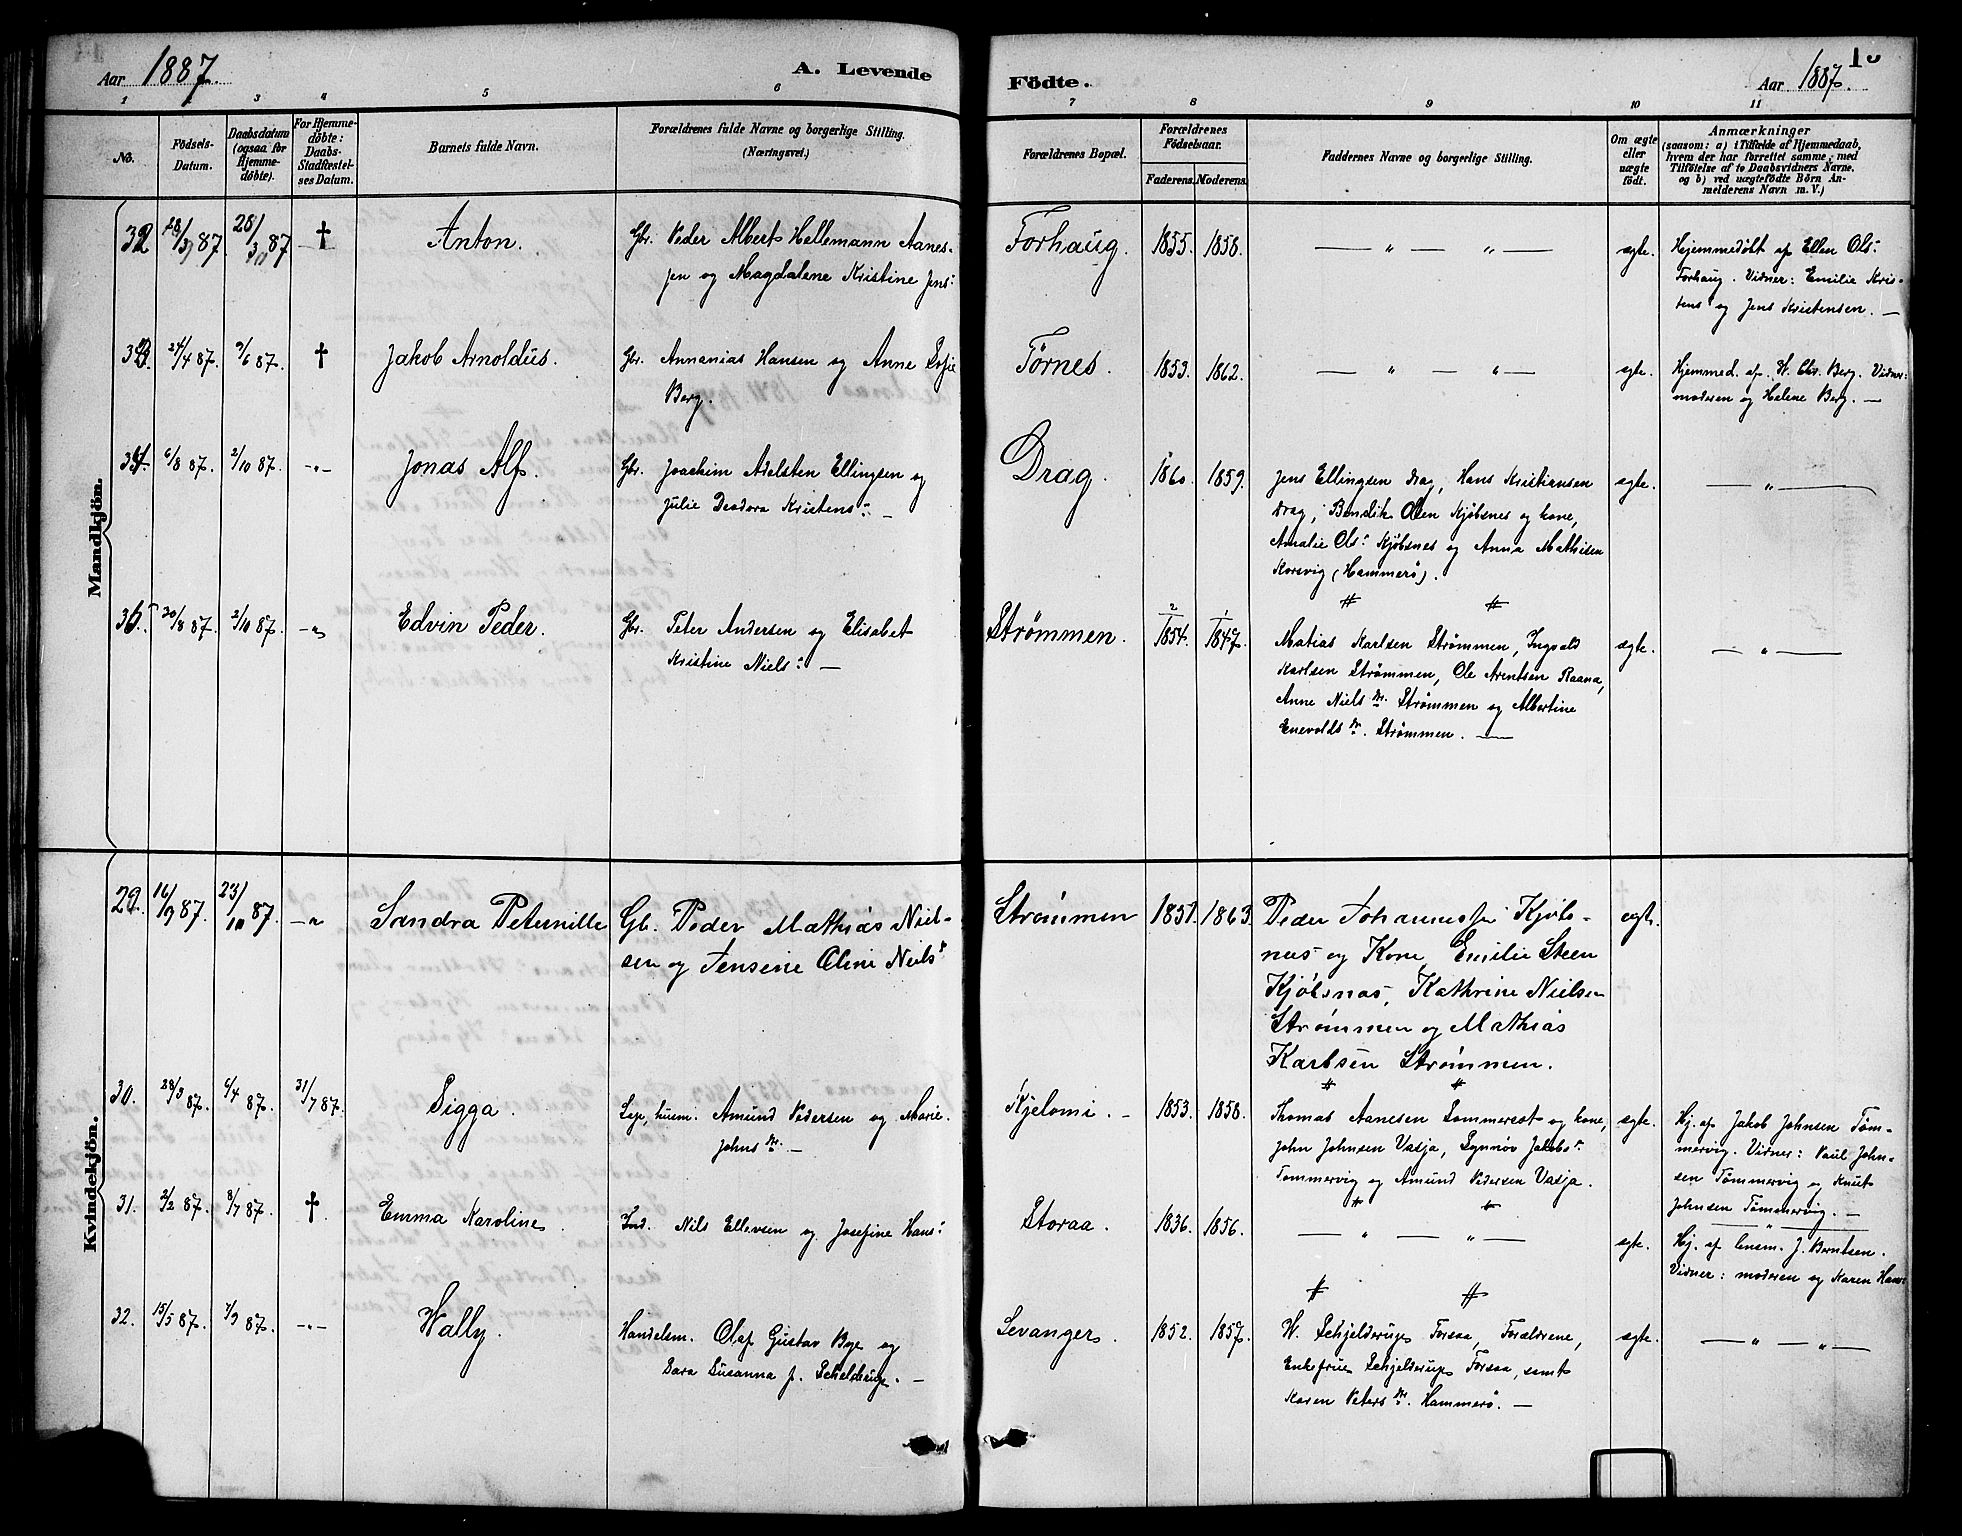 Aar 1887.
A. Levende
Födte.
Aar 1887.
1 3 4 5 6 7 8 9 10 11
No.
Födsels-
Datum.
Daabsdatum
(ogsaa for
Hjemme-
döbte).
For Hjemme-
döbte:
Daabs-
Stadfæstel-
ses Datum.
Barnets fulde Navn.
Forældrenes fulde Navne og borgerlige Stilling.
(Næringsvei.)
Forældrenes Bopæl.
Forældrenes
Fødselsaar.
Faderens. Moderens.
Faddernes Navne og borgerlige Stilling.
Om ægte
eller
uægte
födt.
Anmærkninger
(saasom: a) i Tilfælde af Hjemmedaab,
hvem der har forrettet samme, med
Tilföielse af to Daabsvidners Navne,
og b) ved uægtefödte Börn An-
melderens Navn m. V.)
Mandkjön.
32 87. 87 † Anton. Gbr. Peder Albert Hellemann Aanes-
sen og Magdalene Kristine Jens:
Forhaug. 1855. 1858. — " — " — ægte. Hjemmedøbt af Ellen Ols:
Forhaug. Vidner: Emilie Kris-
tens: og Jens Kristensen. —
33. 24/4 87. 9/6 87. † Jakob Arnoldus. Gbr. Annanias Hansen og Anne Sofie
Berg.
Tørnes. 1853. 1862. — " — " — ægte. Hjemmed. af H. Chr. Berg. Vidner:
moderen og Helene Berg. —
34. 6/8 87. 2/10 87. -"- Jonas Alf. Gbr. Joachim Adelsten Ellingsen og
Julie Deodora Kristens: —
Drag. 1860. 1859. Jens Ellingsen Drag, Hans Kristiansen
Drag, Bendik Olsen Kjøbsnes og kone,
Amalie Ols: Kjøbsnes og Anna Mathisen
Korsvig (Hammerø).
ægte. — " —
35. 20/8 87. 2/10 87. -" Edvin Peder. Gbr. Peter Andersen og Elisabet
Kristine Niels: —
Strømmen. 2/1854. 1/1847. Matias Karlsen Strømmen, Ingvald
Karlsen Strømmen, Ole Arentsen Raana,
Anne Niels dr. Strømmen og Albertine
Enevolds dr. Strømmen. —
ægte. — " —
Kvindekjön.
29. 16/9 87. 23/10 87. -" Sandra Peternille Gb. Peder Mathias Niel-
sen og Jensine Oline Niels:
Strømmen 1851. 1863. Peder Johannessen Kjøbs-
nes og Kone, Emilie Steen
Kjøbsnas, Kathrine Nielsen
Strømmen og Mathias
Karlsen Strømmen.
ægt.
30. 28/3 87. 6/4 87. 31/7 87. Sigga. Lap, husm. Amund Pedersen og Marie
Johns dr. —
Kjelomi. — 1853. 1858. Thomas Aanesen Sommerset og kone,
John Johnsen Vasja, Synnøv Jakobs:
Tømmervig og Amund Pedersen Vasja.
ægte. Hj. af Jakob Johnsen Tøm-
mervig. Vidner: Paul John-
sen Tømmervig og Knut
Johnsen Tømmervig. —
31. 2/2 87. 8/7 87. † Emma Karoline. Ind. Nils Ellevsen og Josefine Hans:
Storaa. 1836. 1856. — " — " — ægte. Hj. af J. Berntsen.
Vidner: moderen og Karen Hans:
32. 15/5 87. 7/9 87. -"- Wally. Handelsm. Olaf Gustav Bye og
Sara Susanna f. Schelderup. —
Levanger. 1852. 1857. W. Schjelderups Forsaa, Forældrene,
Enkefrue Schjelderups Forsaa, samt
Karen Peters dr. Hammerø. —
ægte. — " — " —